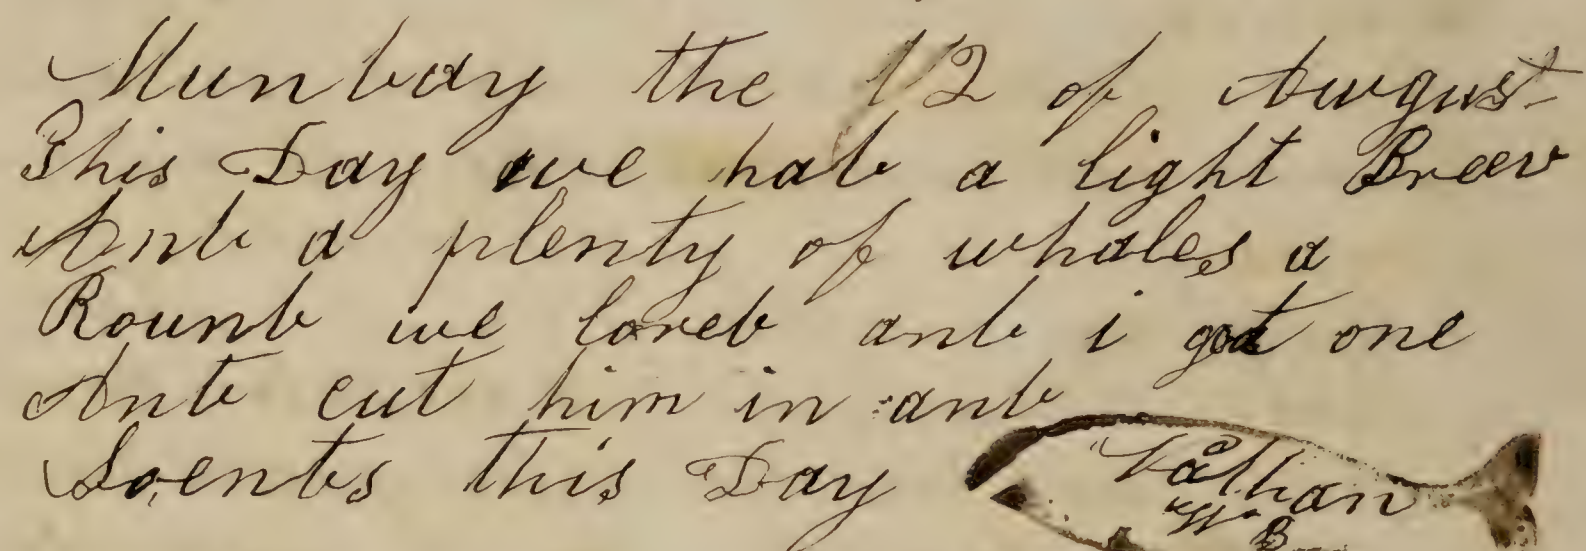 Munbay the 12 of Awgust
This Day we hab a light
Anb a plenty of whales a
Rounb we loreb anb i got one
Anb cut him in anb
So enbs this Day